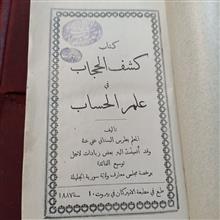 كتاب
كشف الحجاب
في
علم الحساب
تأليف
المعلم بطرس البستاني عفي عنه
وقد أضيفت اليه بعض زيادات لاجل
توسيع الفائدة
برخصة مجلس معارف ولاية سورية الجليلة
طبع في مطبعة الاميركان في بيروت سنة ١٨٨٧